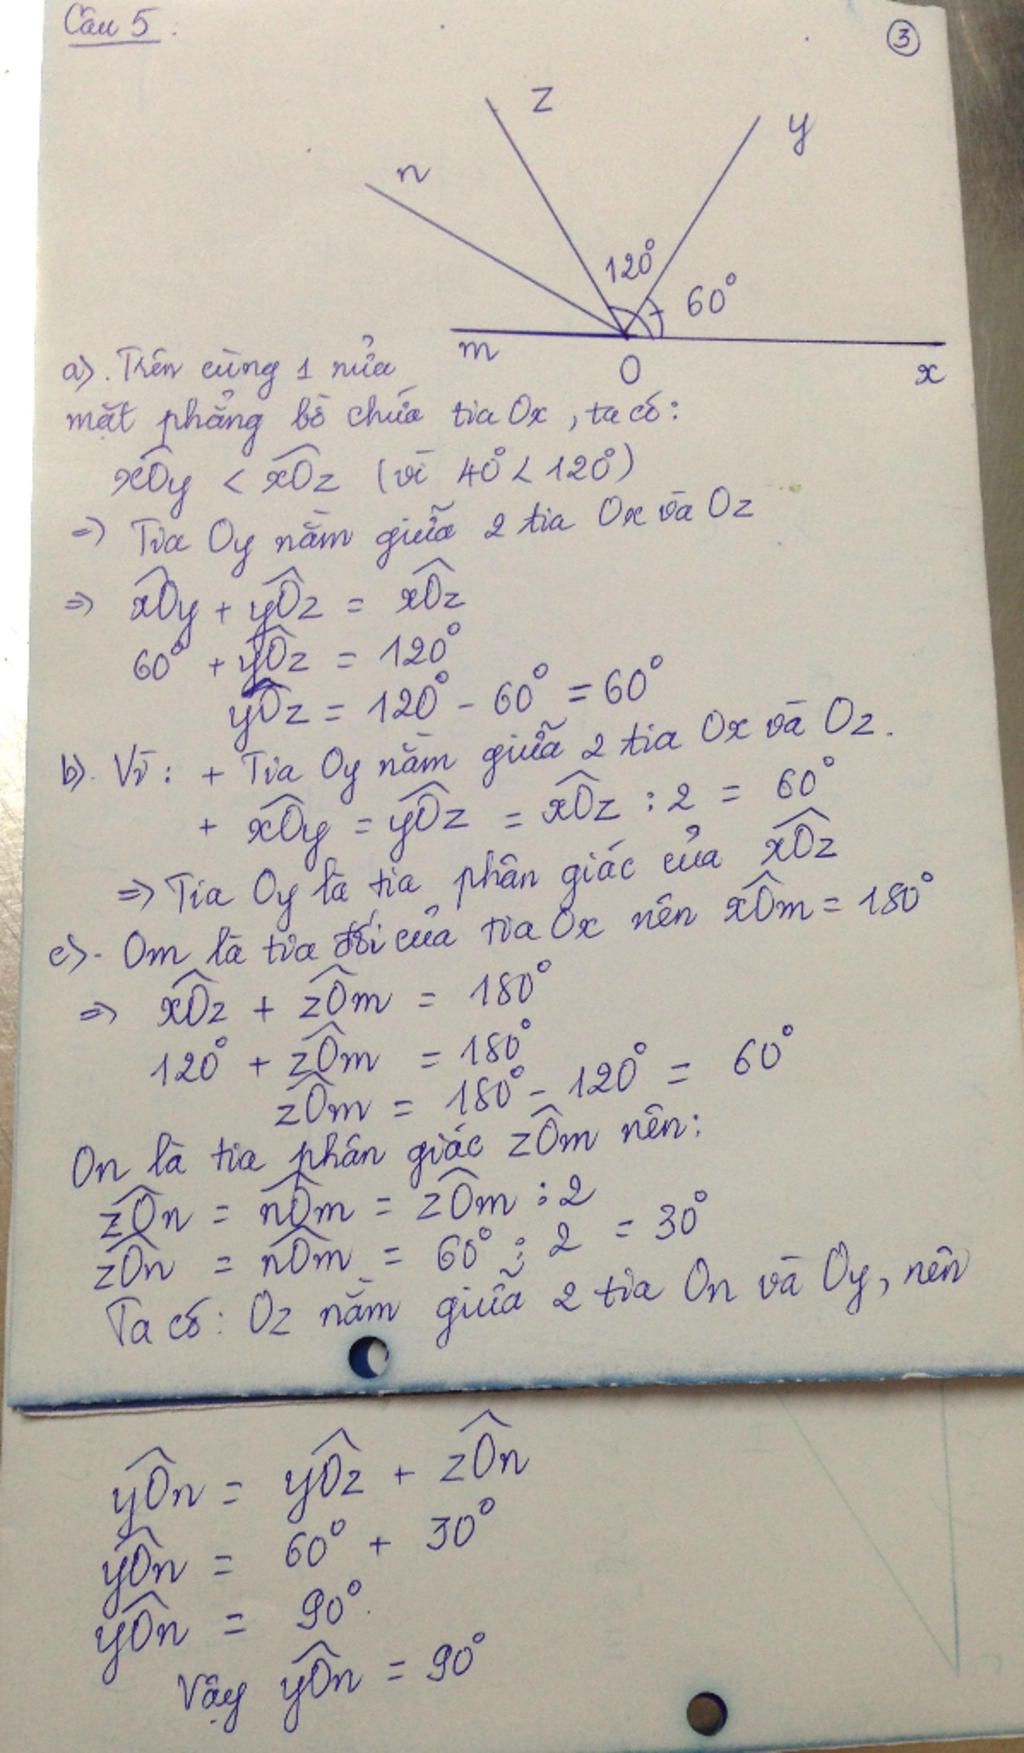 Câu 5.
3
z
y
n
120°
60°
m
O
x
a). Trên cùng 1 nửa
mặt phẳng bờ chứa tia Ox, ta có:
xÔy < xÔz (vì 40° < 120°)
=> Tia Oy nằm giữa 2 tia Ox và Oz
=> xÔy + yÔz = xÔz
60° + yÔz = 120°
yÔz = 120° - 60° = 60°
b). Vì: + Tia Oy nằm giữa 2 tia Ox và Oz.
+ xÔy = yÔz = xÔz : 2 = 60°
=> Tia Oy là tia phân giác của xÔz
c). Om là tia đối của tia Ox nên xÔm = 180°
=> xÔz + zÔm = 180°
120° + zÔm = 180°
zÔm = 180° - 120° = 60°
On là tia phân giác zÔm nên:
zÔn = nÔm = zÔm : 2
zÔn = nÔm = 60° : 2 = 30°
Ta có: Oz nằm giữa 2 tia On và Oy, nên
yÔn = yÔz + zÔn
yÔn = 60° + 30°
yÔn = 90°.
Vậy yÔn = 90°